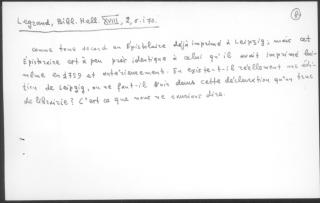 Legrand, Bibl. Hell. XVIII, 2, σ. 170.
comme tous second un Épistolaire déjà imprimé à Leipzig; mais cet
Épistolaire est à peu près identique à celui qu'il avait imprimé lui-
même en 1759 et antérieurement. En existe-t-il réellement une édi-
tion de Leipzig, ou ne faut-il voir dans cette déclaration qu'un truc
de librairie? C'est ce que nous ne saurions dire.